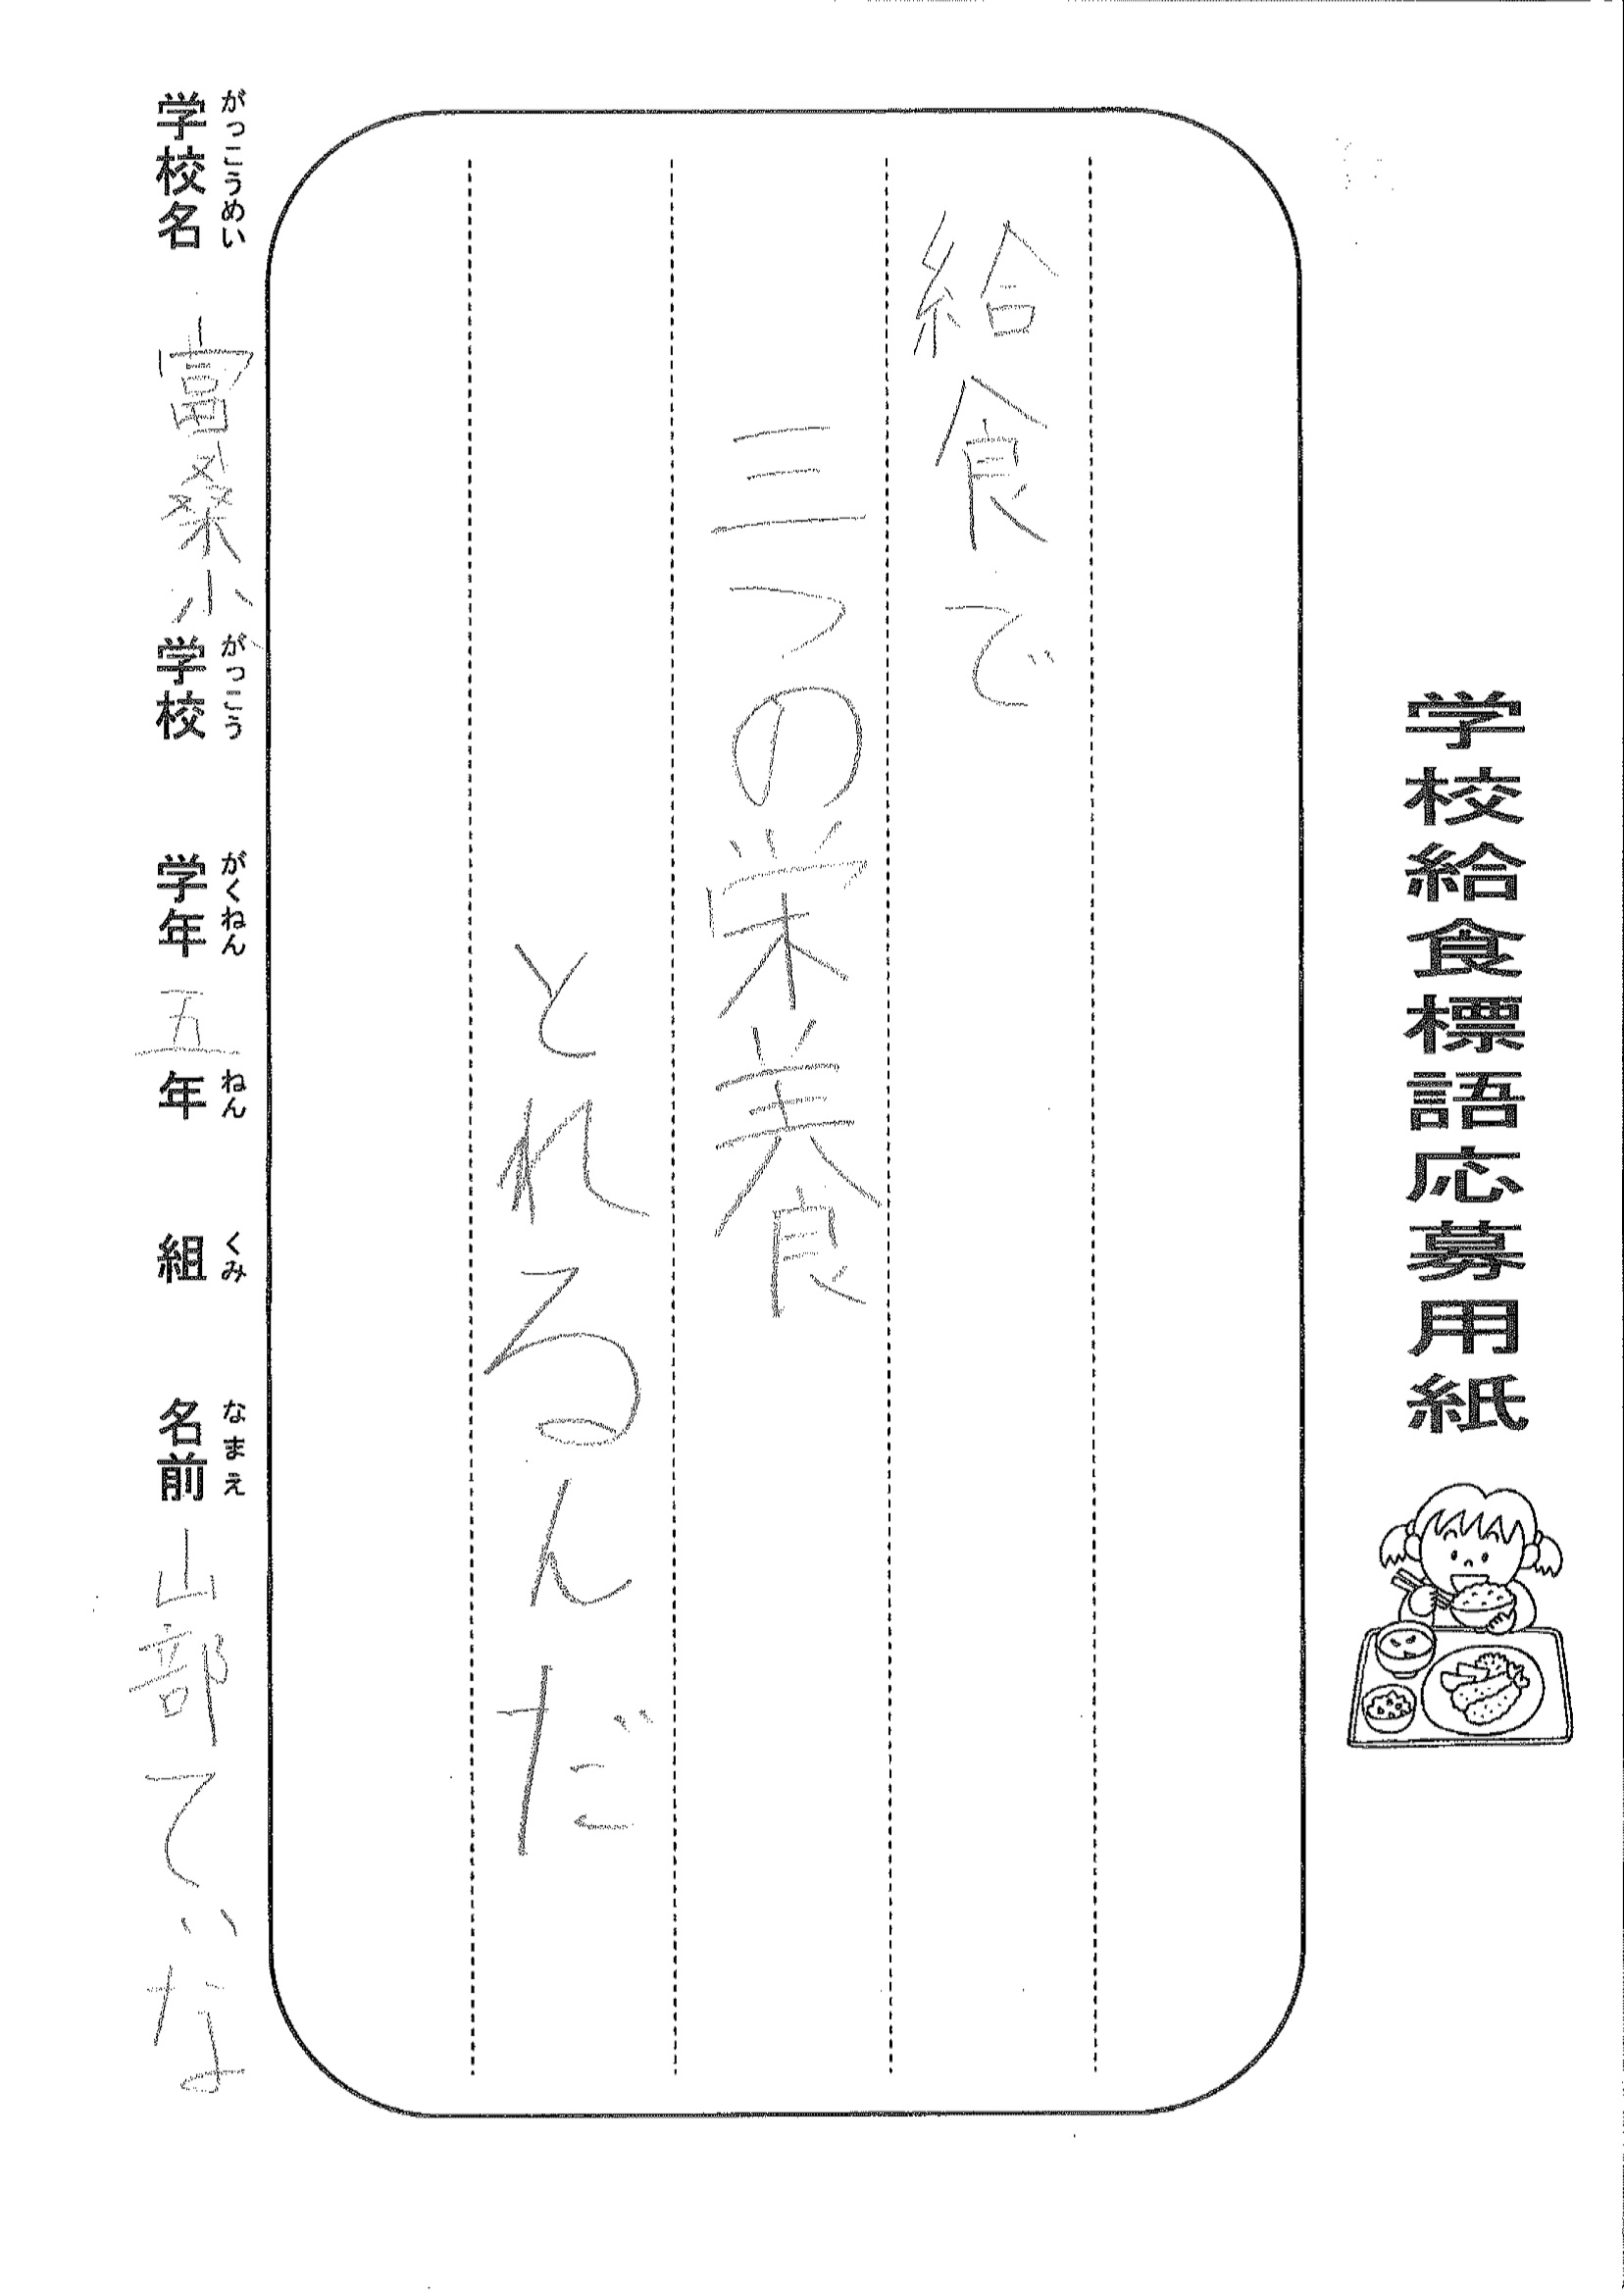 学校給食標語応募用紙
給食で
三つの栄養
とれるんだ
がっこうめい がっこう がくねん ねん くみ なまえ
学校名 富桑小学校 学年 五年 組 名前 山部ていな